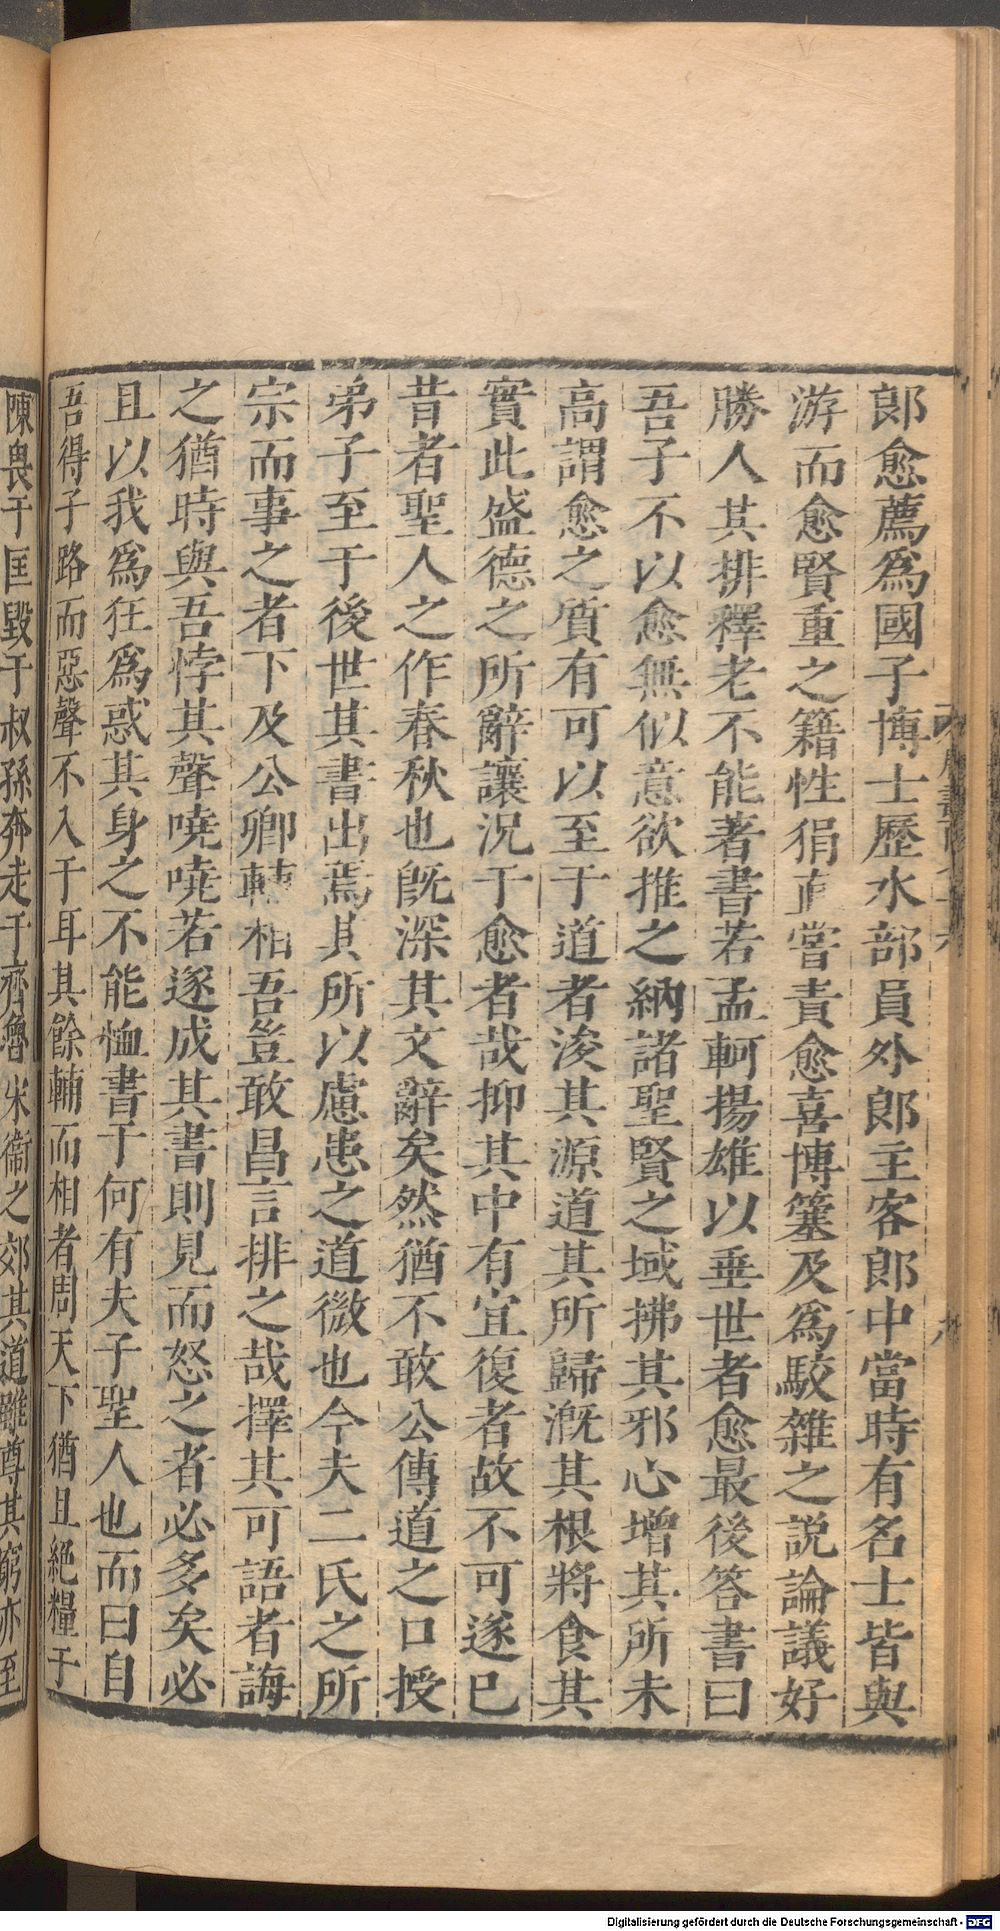 郎愈薦爲國子博士歷水部員外郎主客郎中當時有名士皆與
游而愈賢重之籍性狷直嘗責愈喜博簺及爲駮雜之説論議好
勝人其排釋老不能著書若孟軻揚雄以垂世者愈最後答書曰
吾子不以愈無似意欲推之納諸聖賢之域拂其邪心增其所未
高謂愈之質有可以至于道者浚其源道其所歸漑其根將食其
實此盛德之所辭讓況于愈者哉抑其中有宜復者故不可遂已
昔者聖人之作春秋也旣深其文辭矣然猶不敢公傳道之口授
弟子至于後世其書出焉其所以慮患之道微也今夫二氏之所
宗而事之者下及公卿輔相吾豈敢昌言排之哉擇其可語者誨
之猶時與吾悖其聲嘵嘵若遂成其書則見而怒之者必多矣必
且以我爲狂爲惑其身之不能恤書于何有夫子聖人也而曰自
吾得子路而惡聲不入于耳其餘輔而相者周天下猶且絶糧于
陳畏于匡毀于叔孫奔走于齊魯宋衞之郊其道雖尊其窮亦至
Digitalisierung gefördert durch die Deutsche Forschungsgemeinschaft - DFG